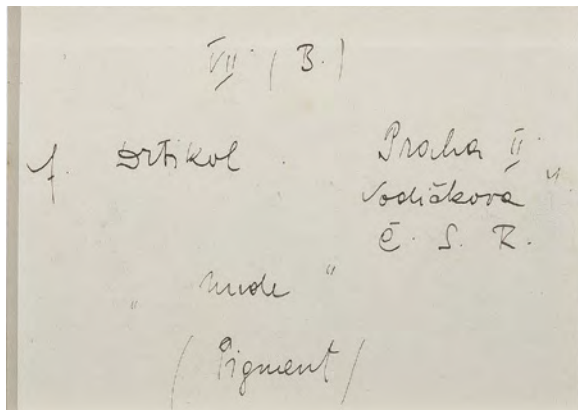 VII. (B.)
f. Drtikol. Praha II.
Vodičkova "
Č. S. R.
" nude "
(Pigment)